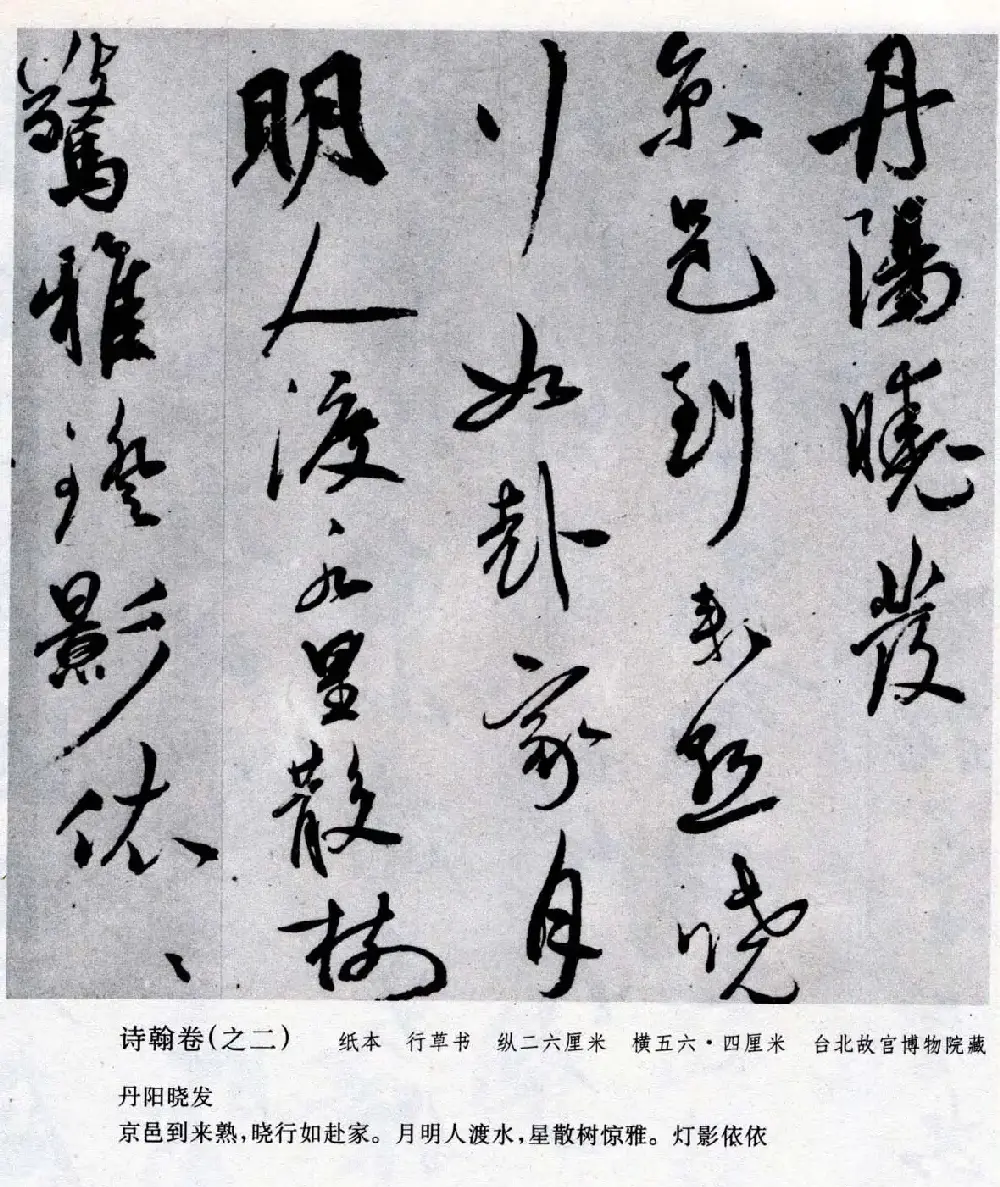 丹陽曉發
京邑到來熟曉
行如赴家月
明人渡水星散樹
驚雅燈影依、
诗翰卷(之二) 纸本 行草书 纵二六厘米 横五六·四厘米 台北故宫博物院藏
丹阳晓发
京邑到来熟,晓行如赴家。月明人渡水,星散树惊雅。灯影依依